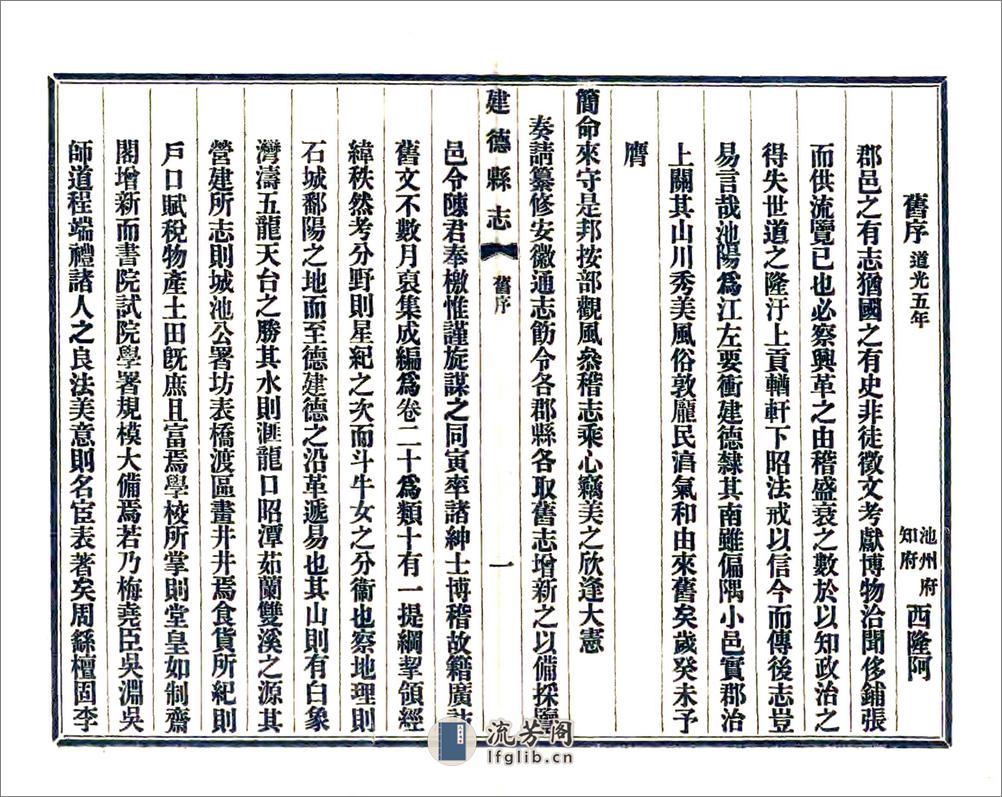 舊序 道光五年 池州府知府 西隆阿
郡邑之有志猶國之有史非徒徵文考獻博物洽聞侈鋪張
而供流覽已也必察興革之由稽盛衰之數於以知政治之
得失世道之隆汙上貢輶軒下昭法戒以信今而傳後志豈
易言哉池陽爲江左要衝建德隸其南雖偏隅小邑實郡治
上關其山川秀美風俗敦龐民湻氣和由來舊矣歲癸未予
膺
簡命來守是邦按部觀風叅稽志乘心竊美之欣逢大憲
奏請纂修安徽通志飭令各郡縣各取舊志增新之以備採覽
建德縣志 舊序 一
邑令陳君奉檄惟謹旋謀之同寅率諸紳士博稽故籍廣
舊文不數月裒集成編爲卷二十爲類十有一提綱挈領經
緯秩然考分野則星紀之次而斗牛女之分衞也察地理則
石城鄱陽之地而至德建德之沿革遞易也其山則有白象
灣濤五龍天台之勝其水則滙龍口昭潭茹蘭雙溪之源其
營建所志則城池公署坊表橋渡區畫井井焉食貨所紀則
戶口賦稅物產土田旣庶且富焉學校所掌則堂皇如制齋
閣增新而書院試院學署規模大備焉若乃梅堯臣吳淵吳
師道程端禮諸人之良法美意則名宦表著矣周繇檀固李
流芳阁
lfglib.cn